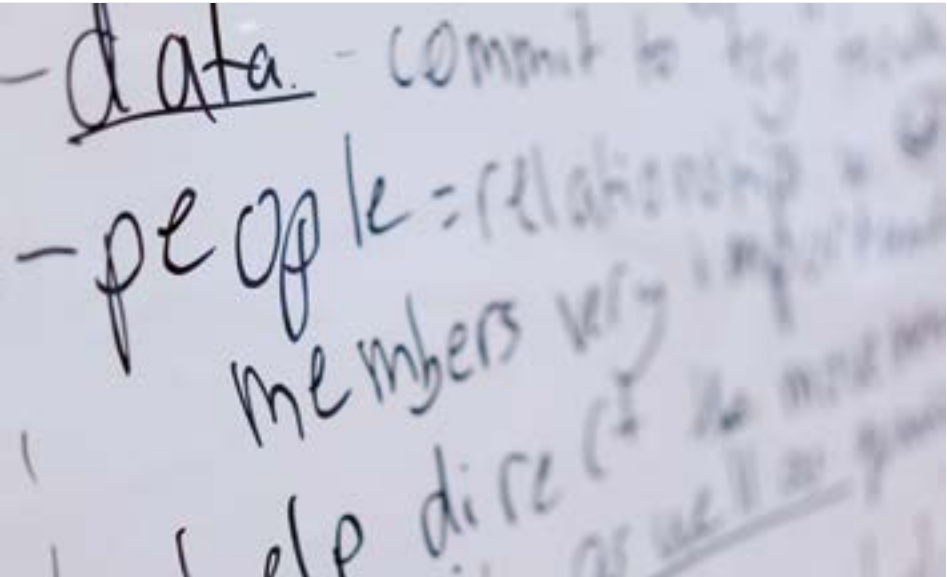 - data. - commit to "try"
- people = relationship
members very important
help direct the
as well as